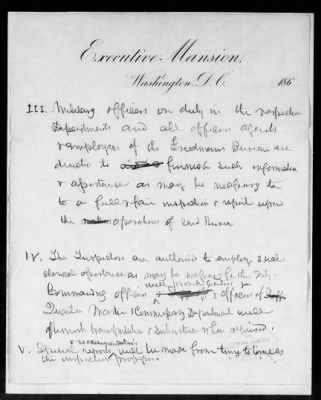 Executive Mansion,
Washington, D.C. 186
III. Military officers on duty in the respective
Departments and all officers agents
& employees of the Freedmens Bureau are
directed to furnish such information
& assistance as may be necessary to
to a full & fair inspection & report upon
the operations of said Bureau
IV. The Inspectors are authorized to employ such
clerical assistance as may be necessary for the duty.
Commanding officers will & officers of
Quarter Master & Commissary Department will
furnish transportation & subsistence when required.
& recommendations
V. Special reports will be made from time to time as
the inspection progresses.